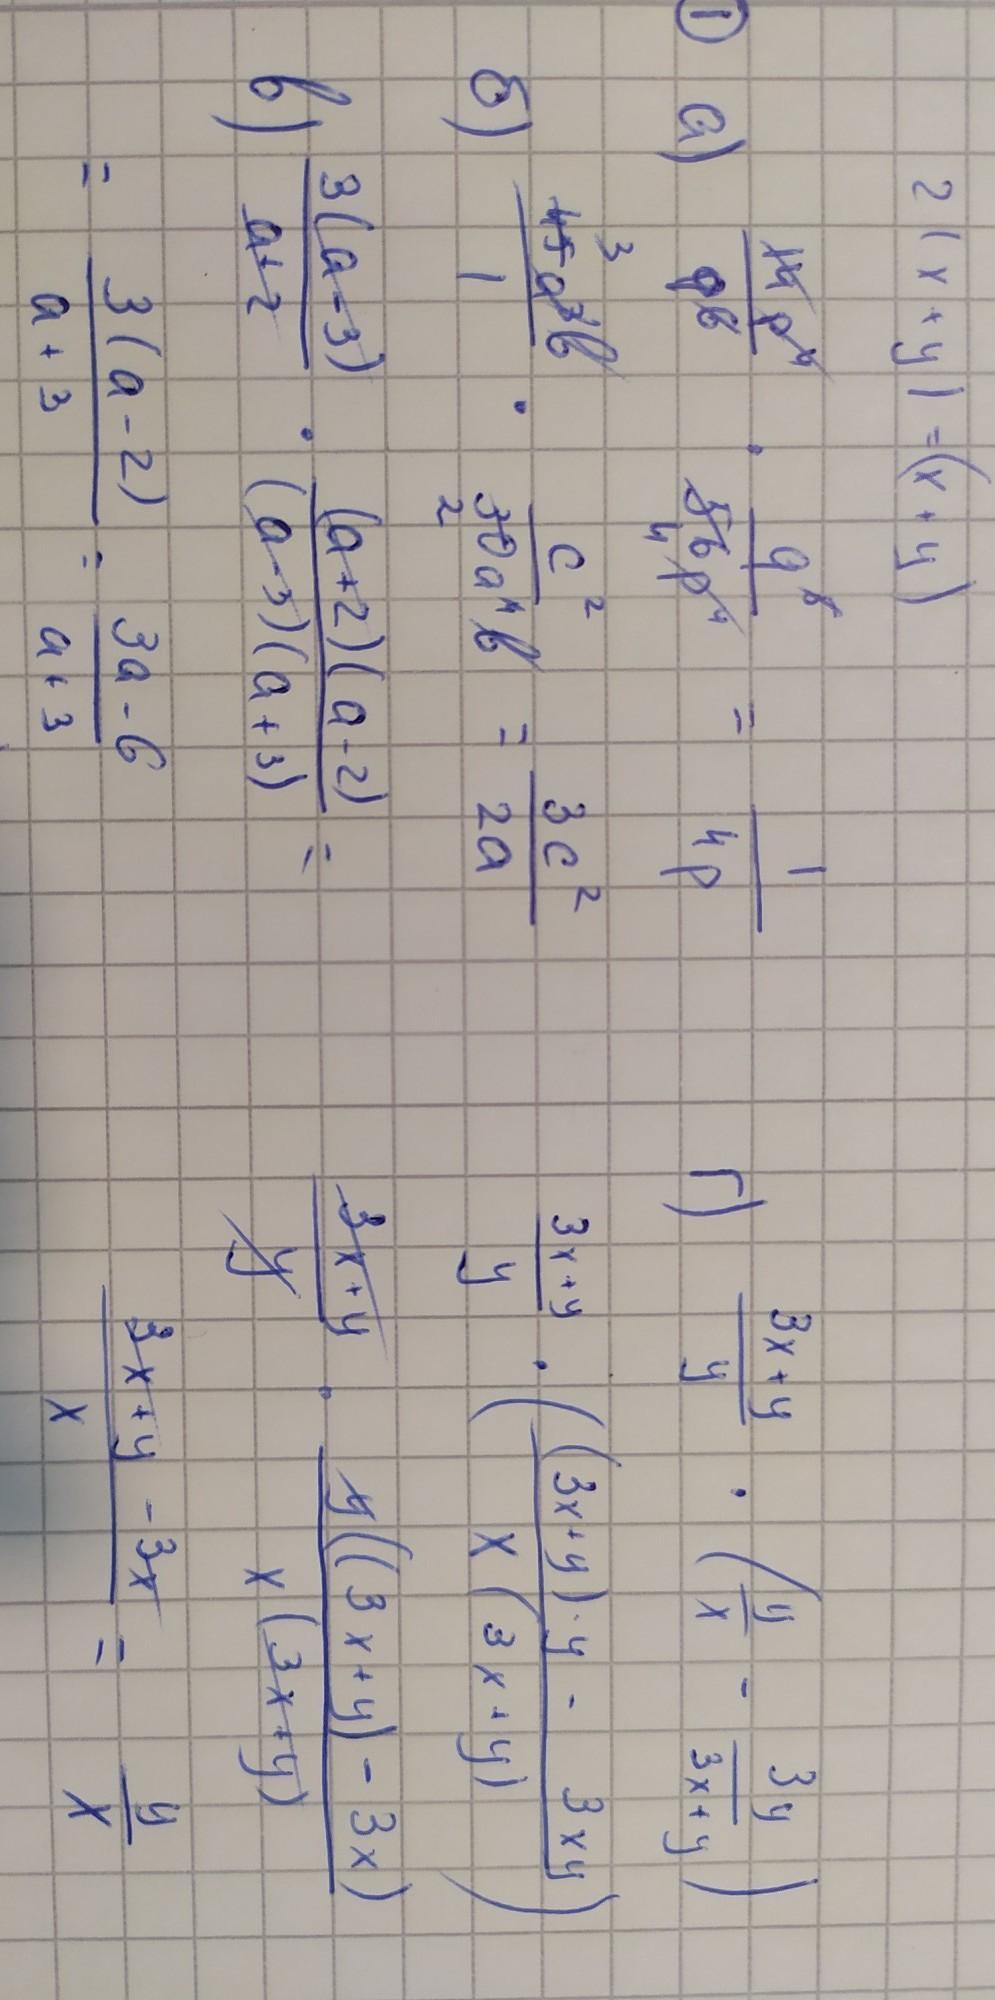 2(x+y)=(x+y)
① а) 14p⁴/q⁶ · q⁶/56p⁴ 4 = 1/4p
б) 45a³b 3/1 · c²/30a⁴b 2 = 3c²/2a
в) 3(a-3)/a+2 · (a+2)(a-2)/(a-3)(a+3) =
= 3(a-2)/a+3 = 3a-6/a+3
г) 3x+y/y · (y/x - 3y/3x+y)
3x+y/y · ((3x+y)·y - 3xy/x(3x+y))
3x+y/y · y((3x+y)-3x)/x(3x+y)
3x+y-3x/x = y/x